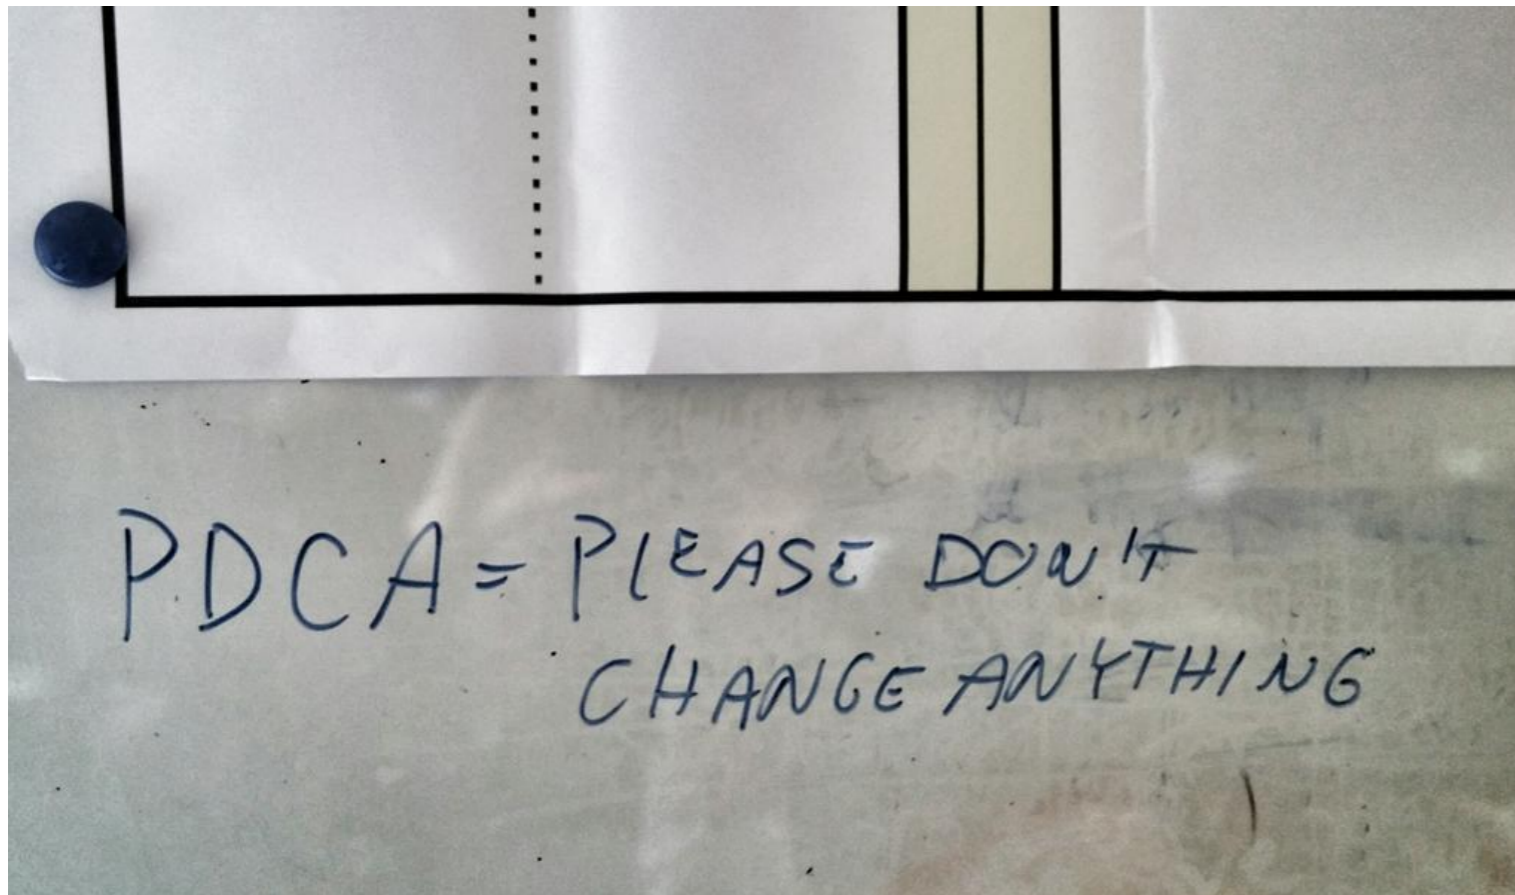 PDCA = PLEASE DON'T
CHANGE ANYTHING